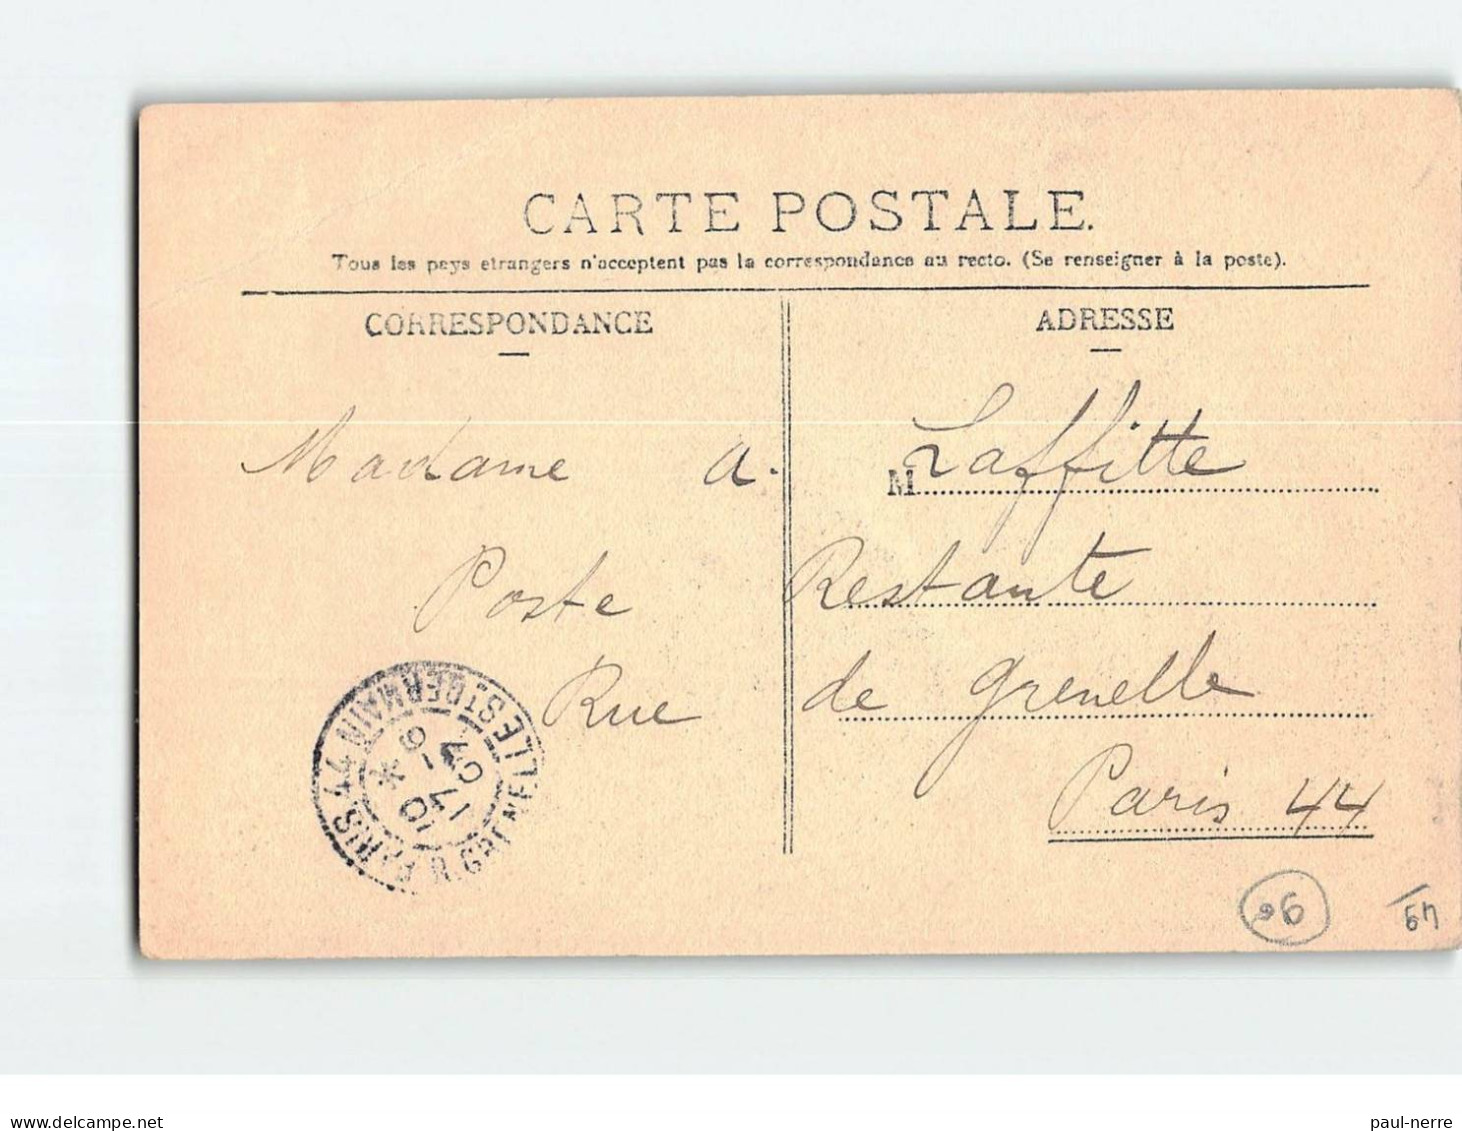 CARTE POSTALE.
Tous les pays etrangers n'acceptent pas la correspondance au recto. (Se renseigner à la poste).
CORRESPONDANCE
ADRESSE
Madame A. M Laffitte
Poste Restante
Rue de Grenelle
Paris 44
PARIS 44 R. GRENELLE ST GERMAIN
paul-nerre